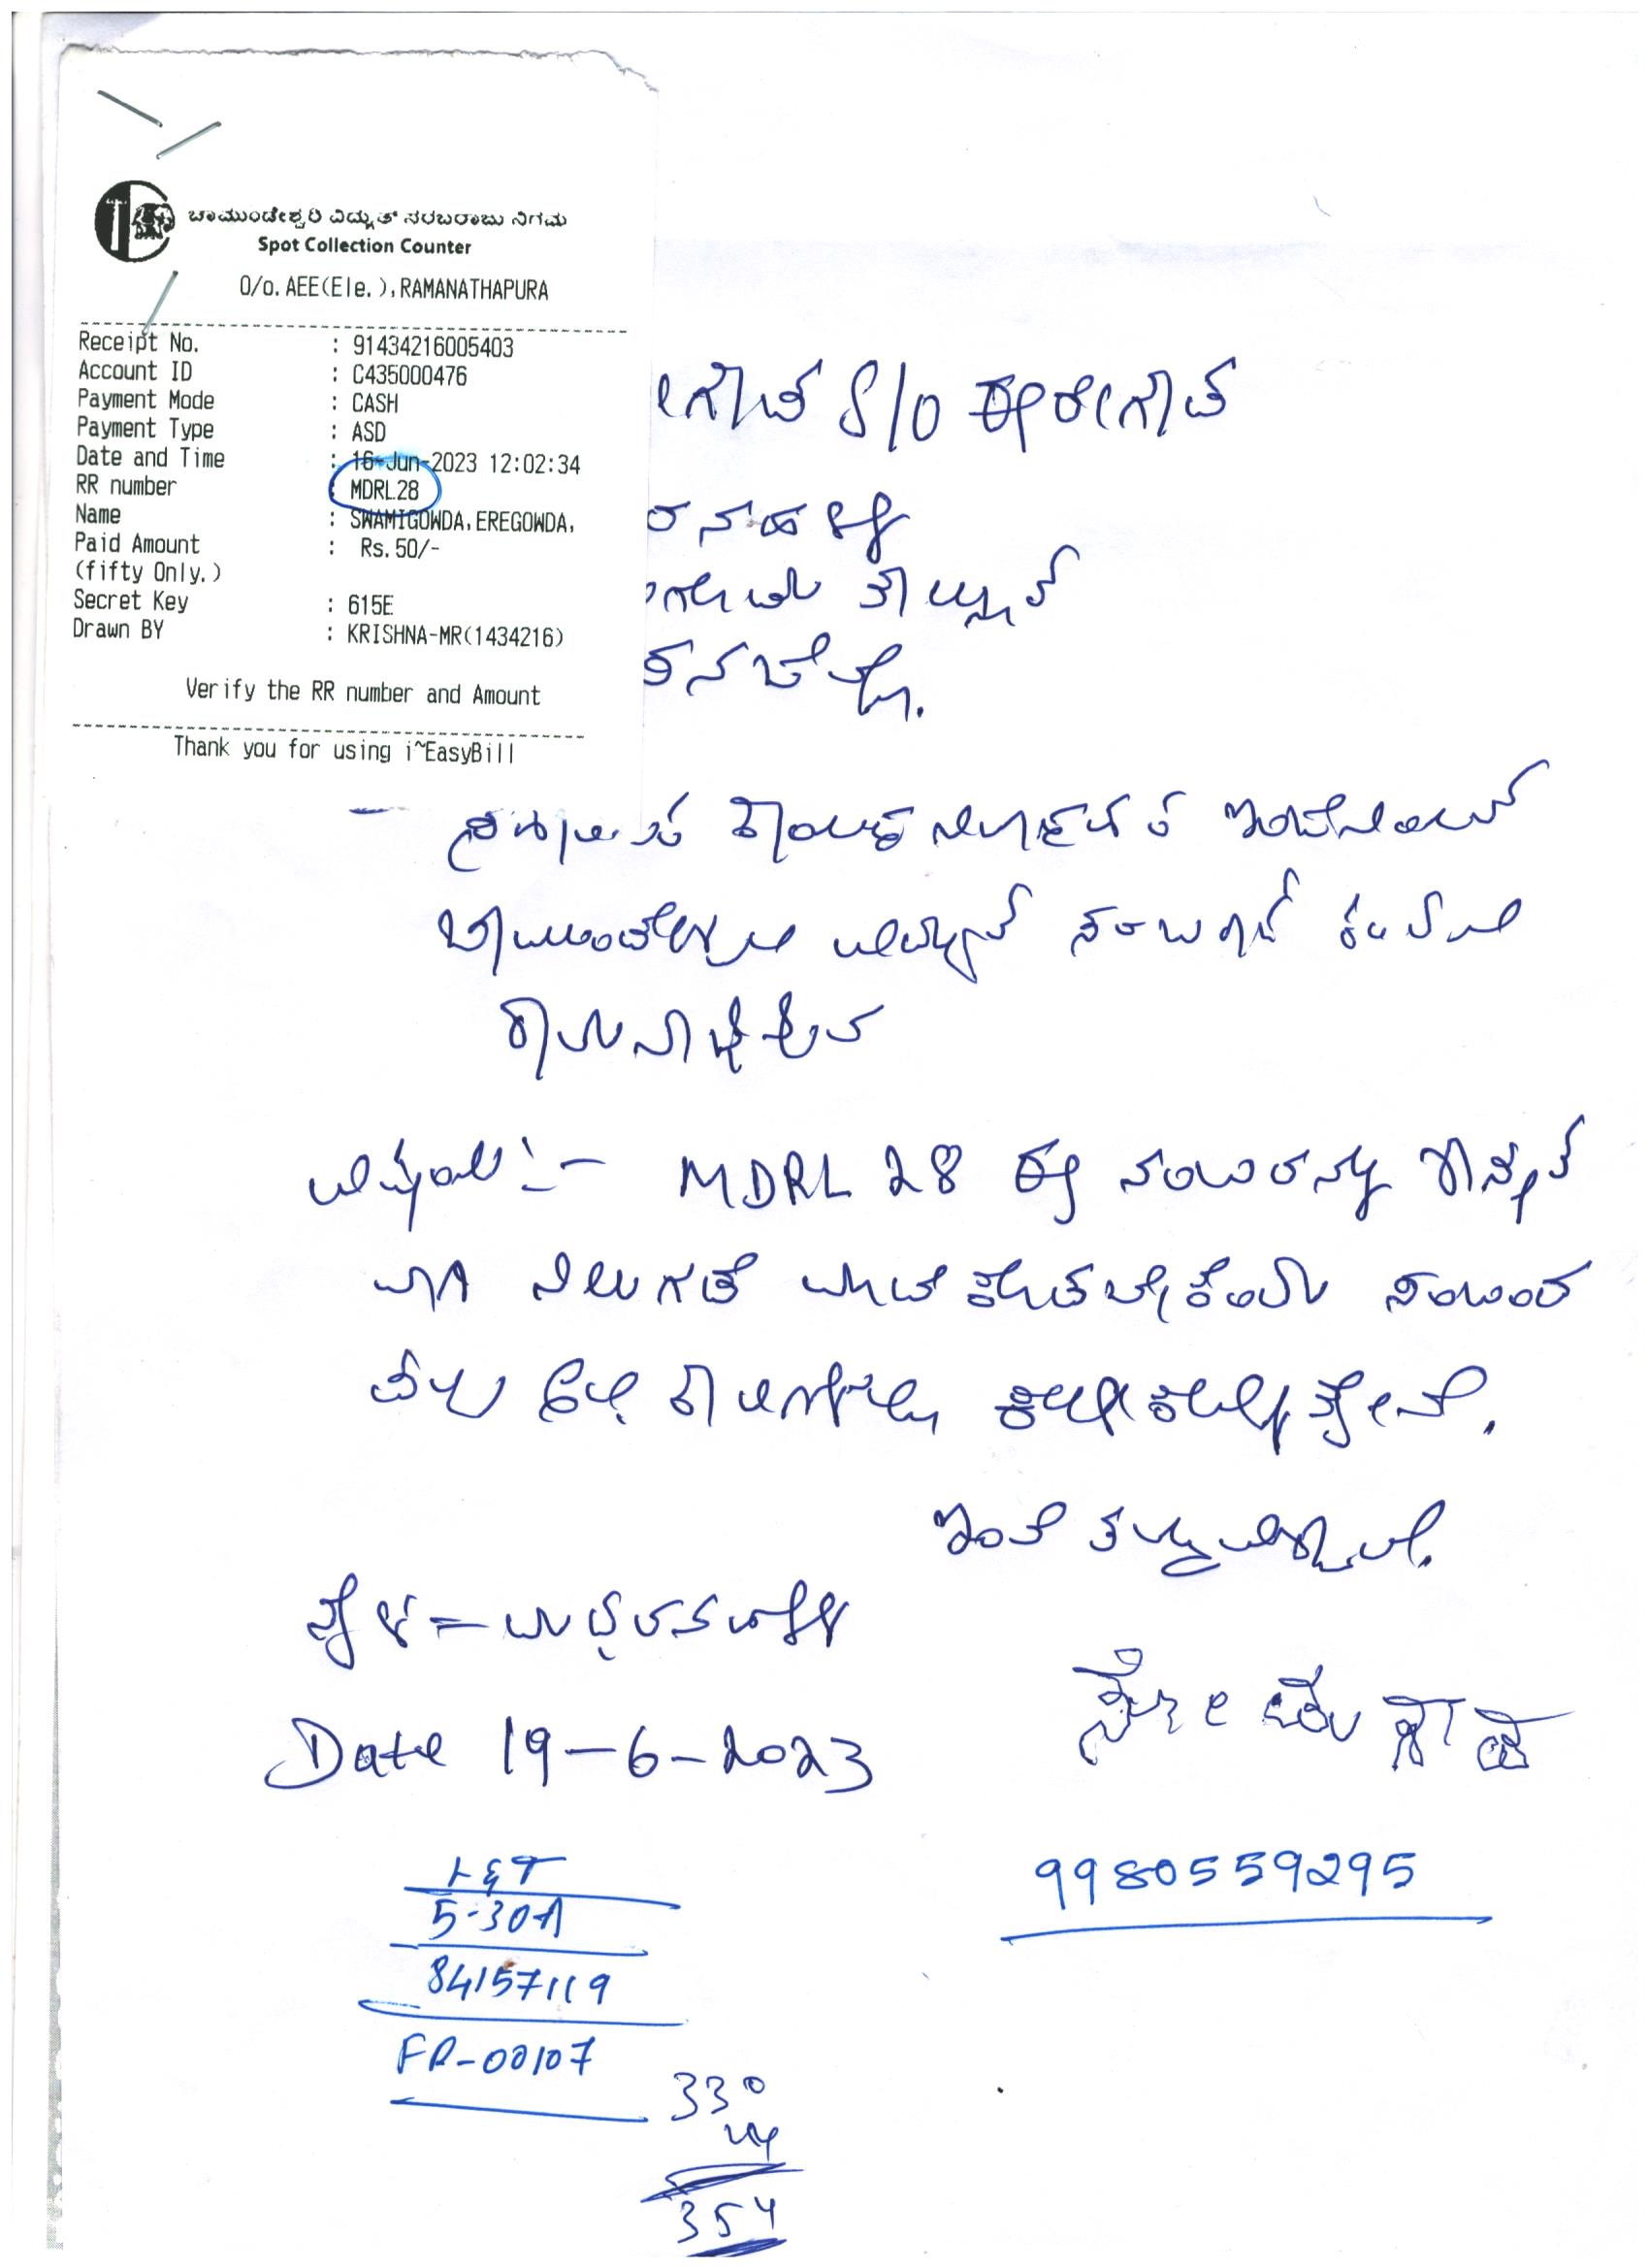 ಚಾಮುಂಡೇಶ್ವರಿ ವಿದ್ಯುತ್ ಸರಬರಾಜು ನಿಗಮ
Spot Collection Counter
O/o. AEE(Ele.),RAMANATHAPURA
Receipt No. : 91434216005403
Account ID : C435000476
Payment Mode : CASH
Payment Type : ASD
Date and Time : 16-Jun-2023 12:02:34
RR number : MDRL28
Name : SWAMIGOWDA,EREGOWDA,
Paid Amount : Rs.50/-
(fifty Only.)
Secret Key : 615E
Drawn BY : KRISHNA-MR(1434216)
Verify the RR number and Amount
Thank you for using i~EasyBill
ಗೌಡ S/O ಈರೇಗೌಡ
ರನಹಳ್ಳಿ
ತಾಲ್ಲೂಕ್
ಇಂಜಿನಿಯರ್
ಚಾಮುಂಡೇಶ್ವರಿ ವಿದ್ಯುತ್ ಸರಬರಾಜು ಕಂಪನಿ
ರಾಮನಾಥಪುರ
ವಿಷಯ :- MDRL 28 ಈ ನಂಬರನ್ನು ಶಾಶ್ವತ
ವಾಗಿ ನಿಲುಗಡೆ ಮಾಡಿಕೊಡಬೇಕೆಂದು
ಕೇಳಿಕೊಳ್ಳುತ್ತೇನೆ.
ಇಂತಿ ತಮ್ಮ ವಿಶ್ವಾಸಿ.
ಸ್ಥಳ =
Date 19-6-2023
L&T
5-30A
84157119
FR-00107
9980559295
330
24
354